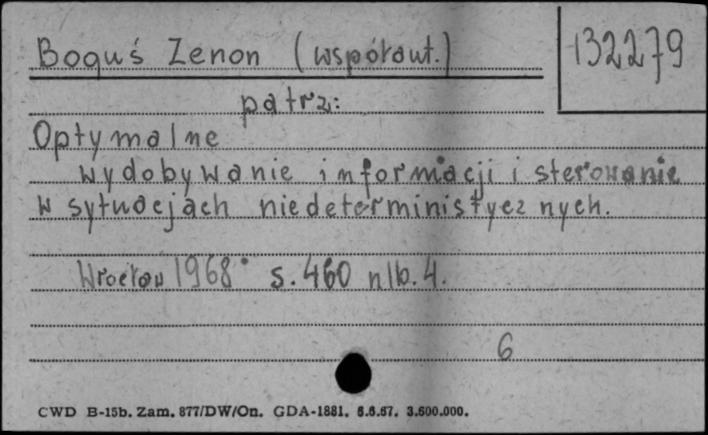 Boguś Zenon (współaut.)
132279
patrz:
Optymalne
wydobywanie informacji i sterowanie
w sytuacjach niedeterministycznych.
Wrocław 1968 s. 460 nlb. 4.
6
CWD B-15b. Zam. 877/DW/On. GDA-1881. 6.6.67. 3.600.000.